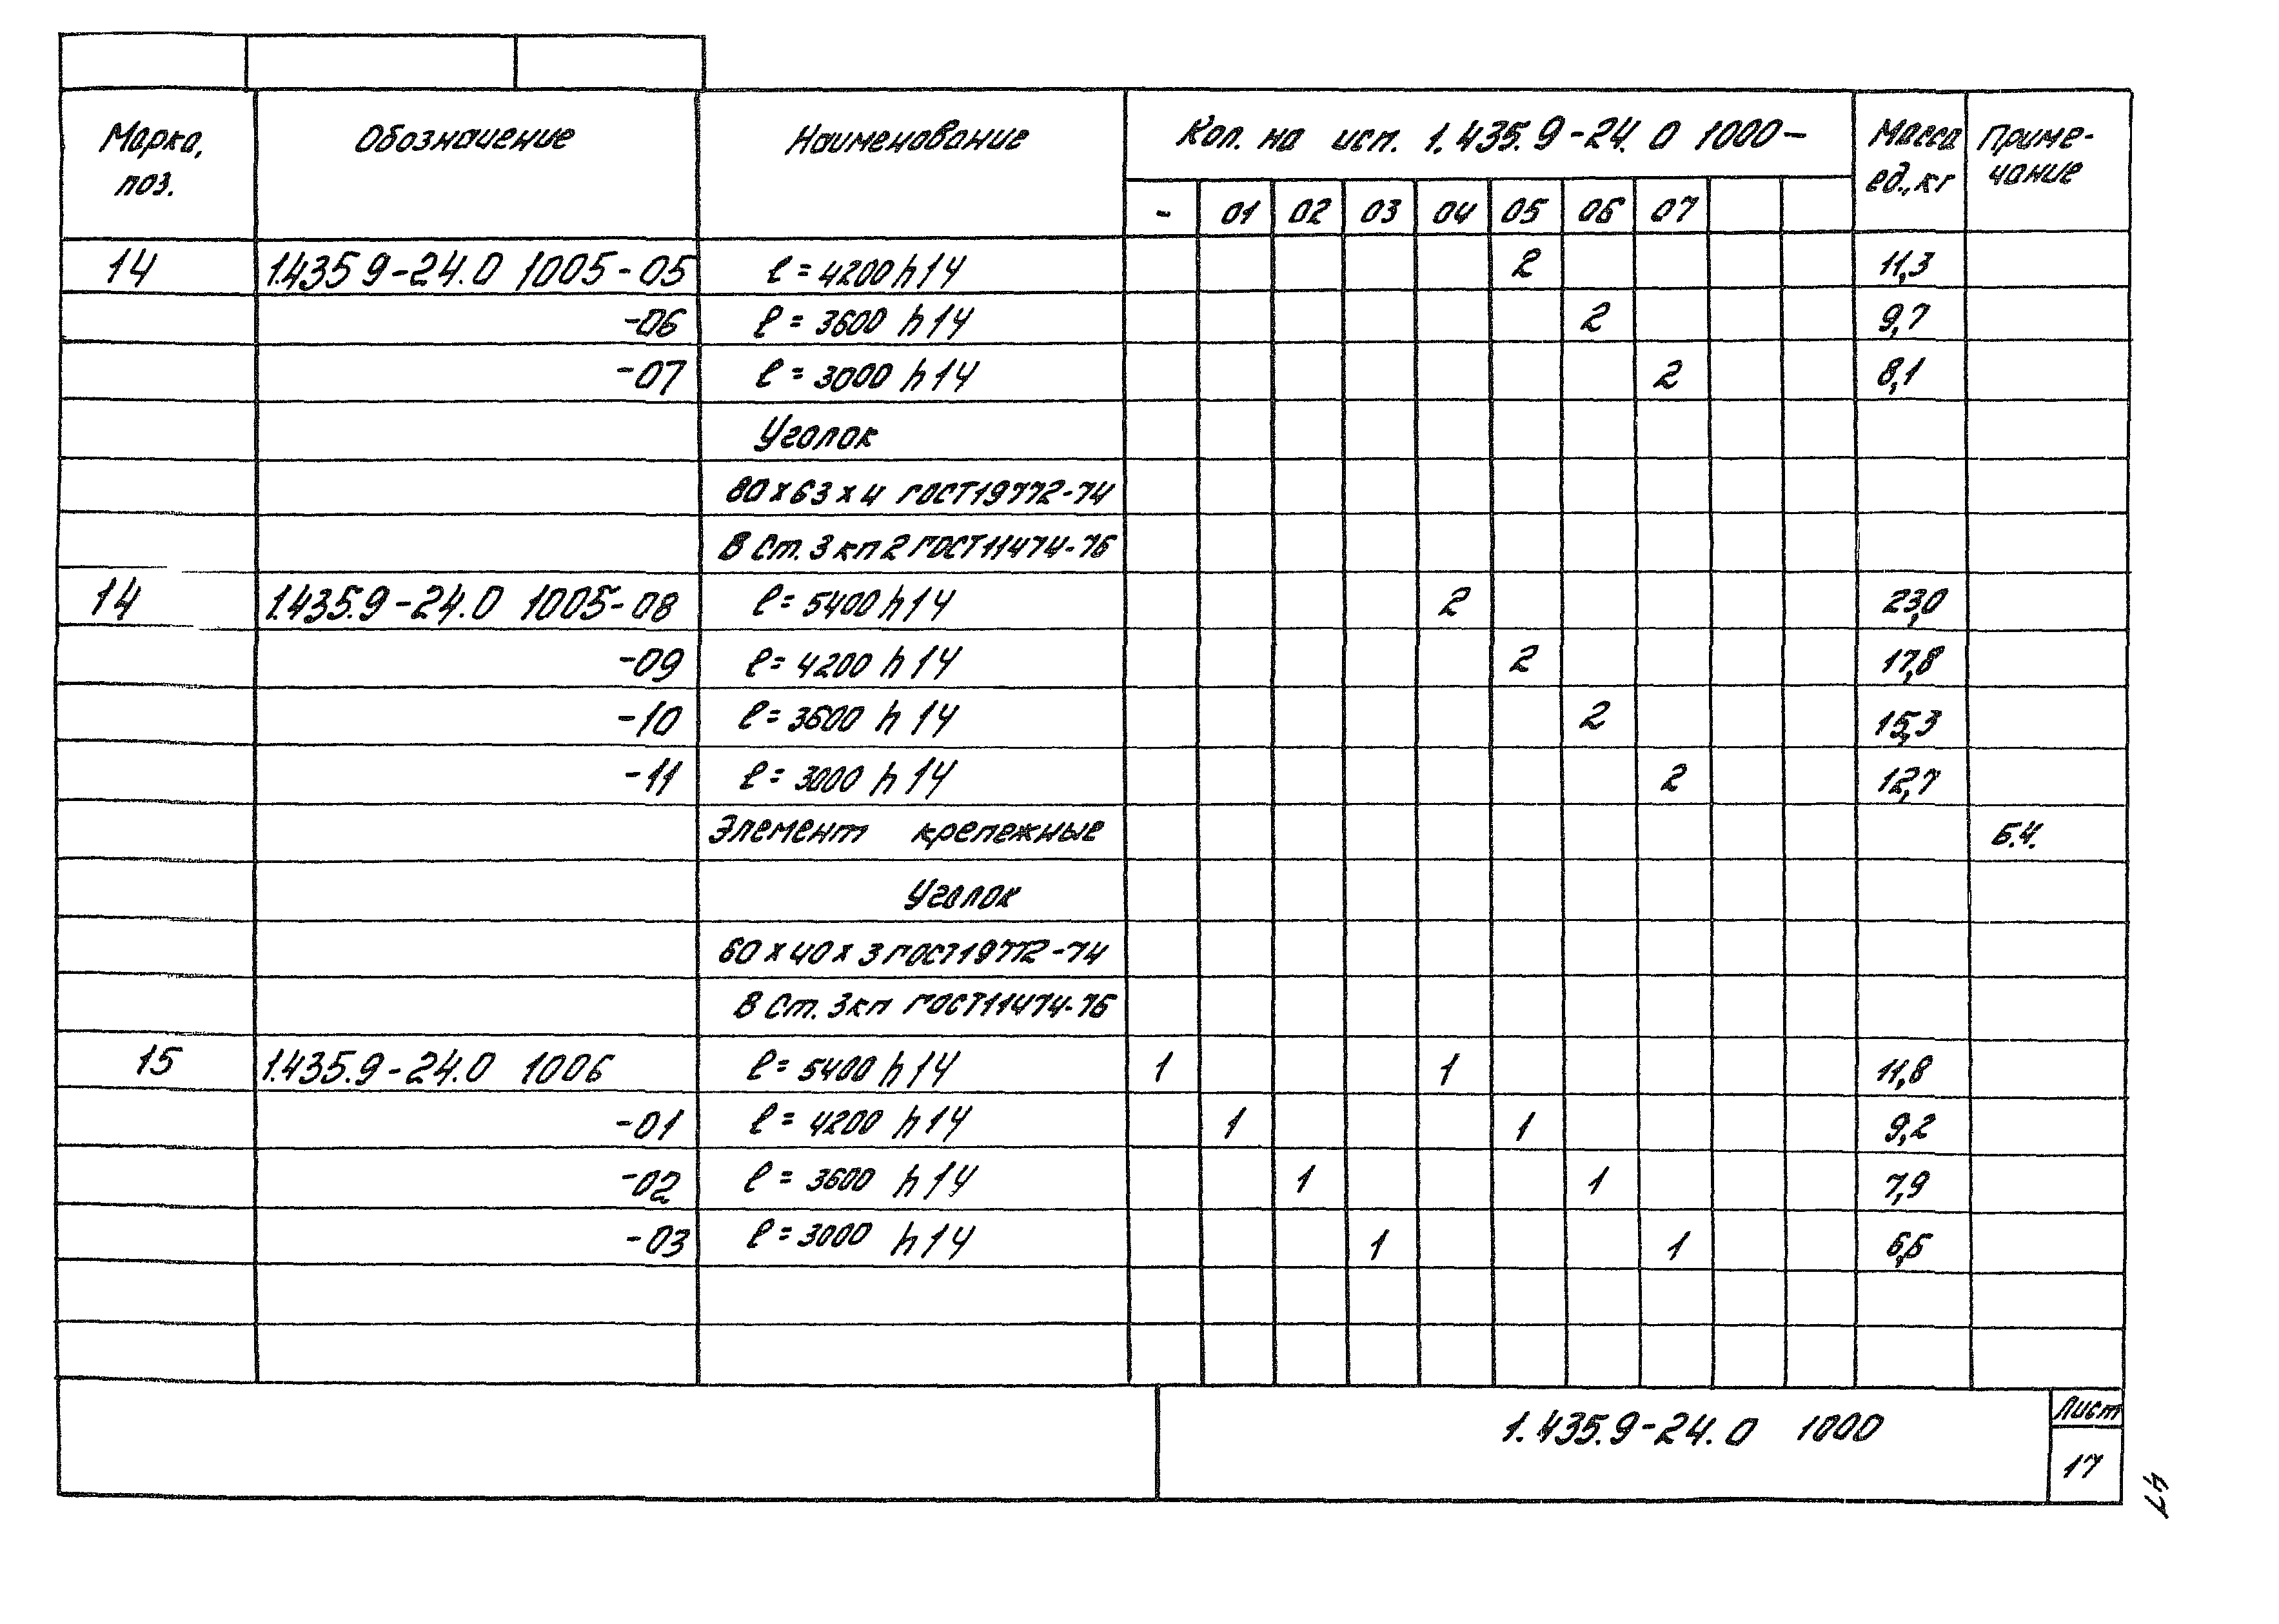 Марка, поз. Обозначение Наименование Кол. на исп. 1.435.9-24.0 1000- Масса ед., кг Приме-чание
- 01 02 03 04 05 06 07
14 1.435 9-24.0 1005-05 ℓ=4200 h14 2 11,3
-06 ℓ=3600 h14 2 9,7
-07 ℓ=3000 h14 2 8,1
Уголок
80х63х4 ГОСТ19772-74
В Ст. 3 кп 2 ГОСТ11474-76
14 1.435.9-24.0 1005-08 ℓ=5400 h14 2 23,0
-09 ℓ=4200 h14 2 17,8
-10 ℓ=3600 h14 2 15,3
-11 ℓ=3000 h14 2 12,7
Элемент крепежные Б.Ч.
Уголок
60х40х3 ГОСТ19772-74
В Ст. 3кп ГОСТ11474-76
15 1.435.9-24.0 1006 ℓ=5400 h14 1 1 11,8
-01 ℓ=4200 h14 1 1 9,2
-02 ℓ=3600 h14 1 1 7,9
-03 ℓ=3000 h14 1 1 6,5
1.435.9-24.0 1000
Лист
17
47